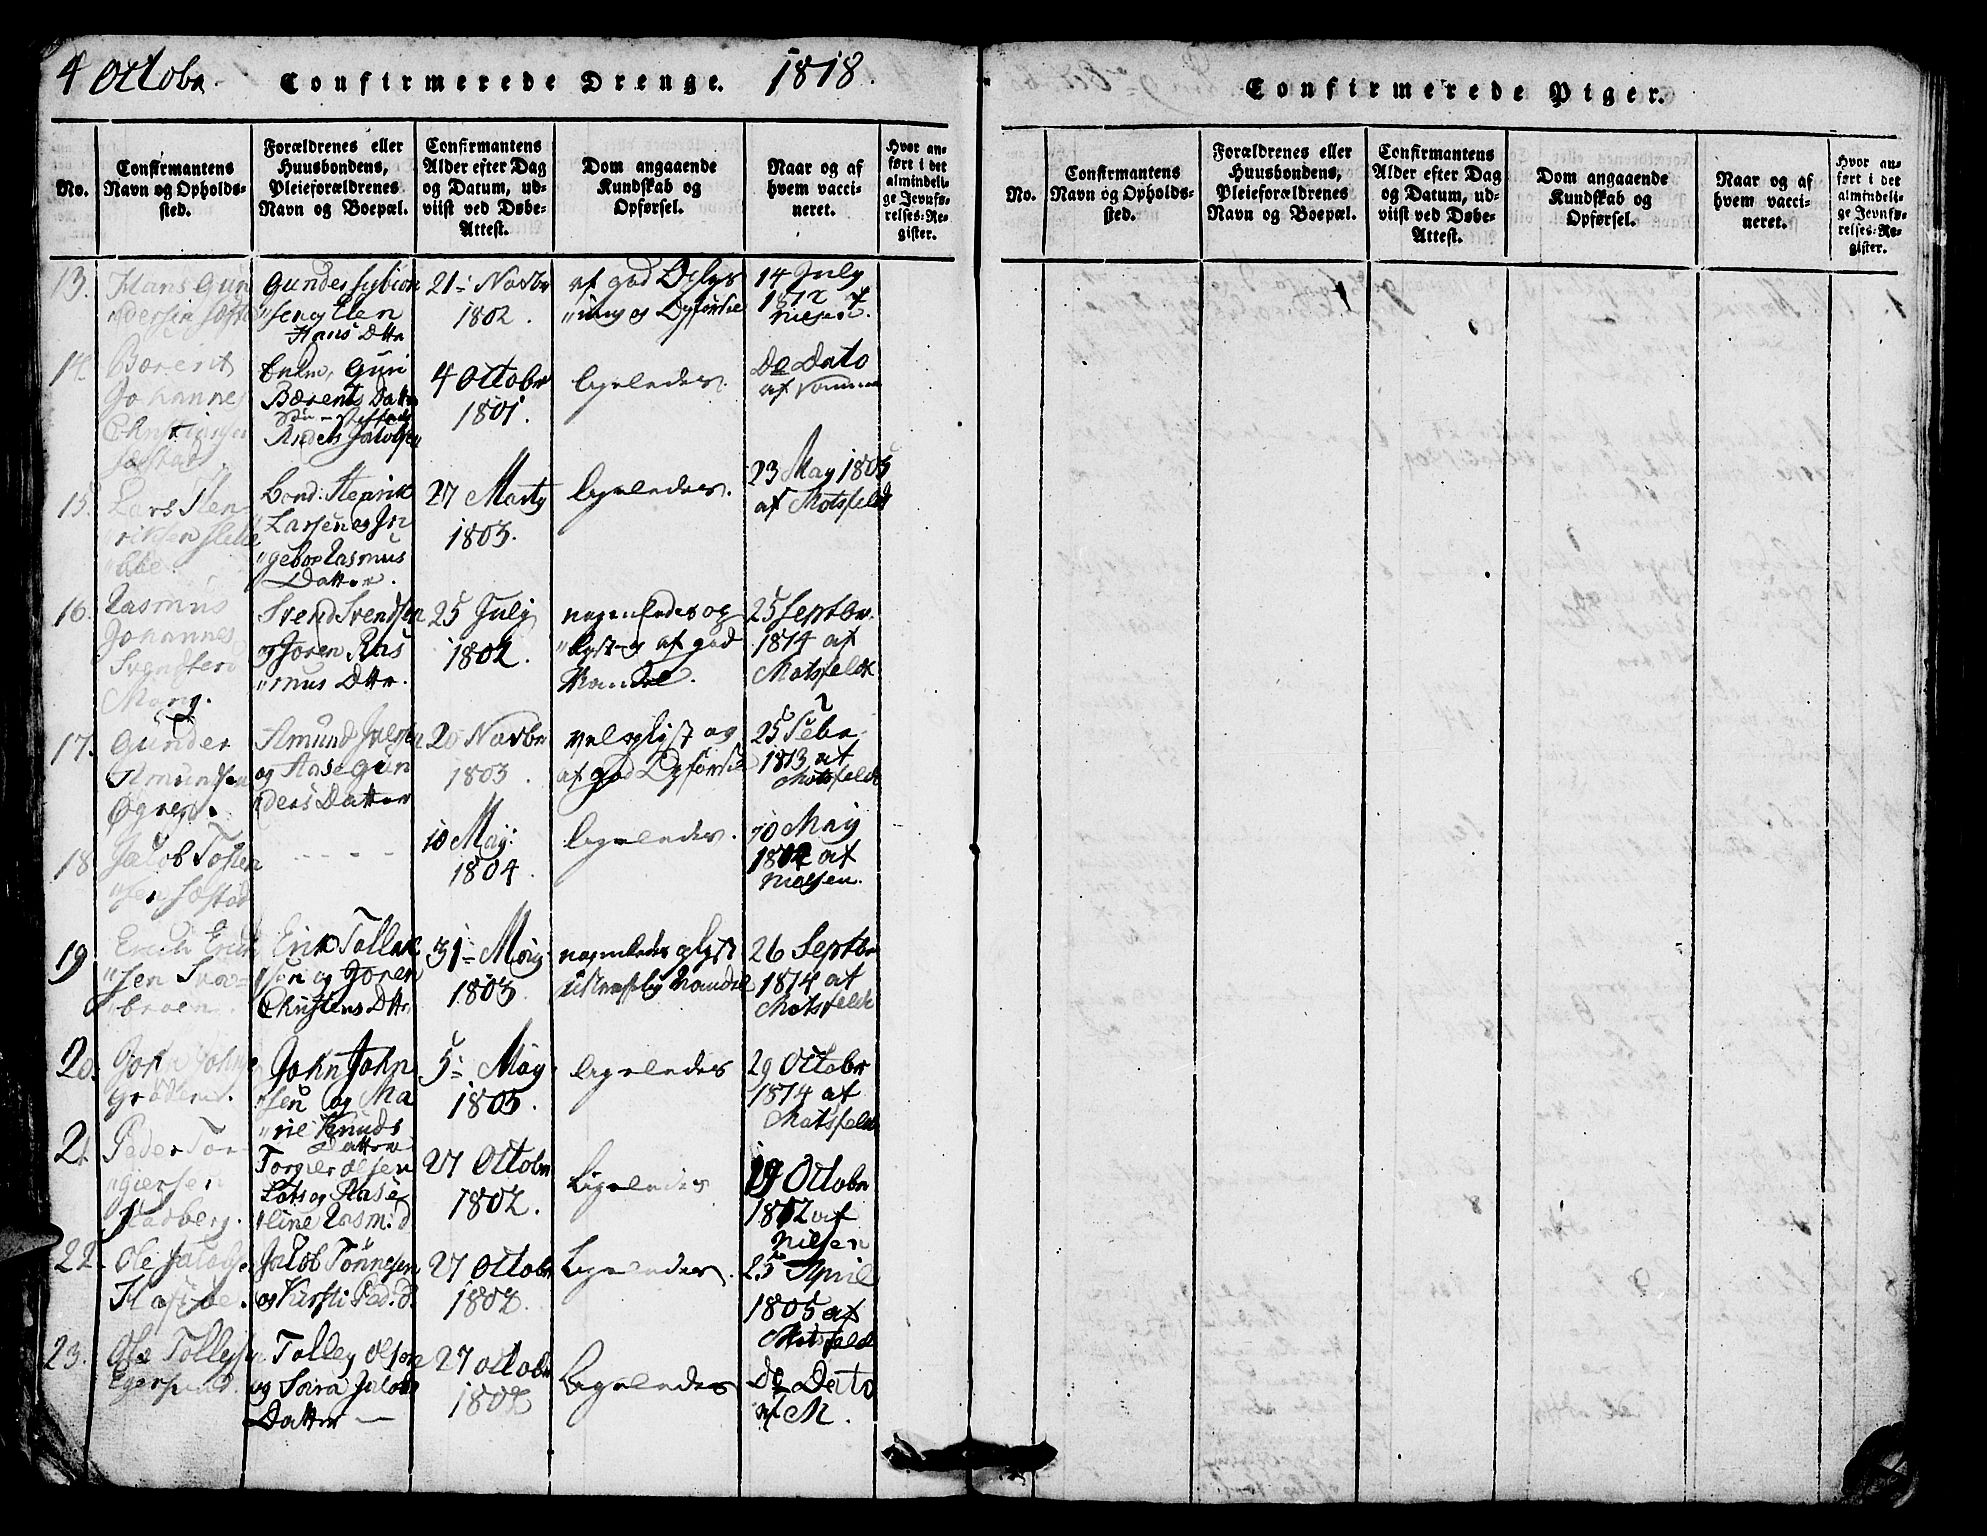 4 Octobr.
Confirmerede Drenge.
1818.
No.
Confirmantens
Navn og Opholds-
sted.
Forældrenes eller
Huusbondens,
Pleieforældrenes
Navn og Boepæl.
Confirmantens
Alder efter Dag
og Datum, ud-
viist ved Døbe-
Attest.
Dom angaaende
Kundskab og
Opførsel.
Naar og af
hvem vacci-
neret.
Hvor an-
ført i det
almindeli-
ge Jevnfø-
relses-Re-
gister.
13.
Hans Gun
dersen
Gunder
Elen
Hans Dttr
21 Novbr
1802.
af god Oplys
"ning og Opførsel
14 July
1812 af
Nielsen.
14.
Børent
Johannes
Christensen
Guri
Bærents Dattr
Anders Jacobsen
4 Octobr
1801.
ligeledes.
De Dato
af samme
15.
Lars Hen
"riksen
Bond: Henrik
Larsen og In
"gebor Rasmus
Datter.
27 Marty
1803.
ligeledes.
23 May 1805
af Motsfeldt
16.
Rasmus
Johannes
Svendsen
Mong.
Svend Svendsen
og Joren Ras
"mus Dttr.
25 July
1802.
nogenledes op
"lyst og af god
Vandel.
25 Septbr.
1814 af
Motsfeldt
17.
Gunder
Amundsen
Øgreid.
Amund
og Aase Gun
ders Datter
20 Novbr
1803.
vel oplyst og
af god Opførsel
25 Febr.
1813 af
Motsfeldt
18
Jacob Tosten
"sen Sæstad
- - - -
10 May:
1804.
ligeledes.
10 May
1812 af
Nielsen.
19
Erich Erich
"sen Svaa-
"broen.
Erik Tollak
"sen og Joren
Christens Dttr
31 May
1803.
nogenledes oplyst
ustraffelig Vandel
26 Septbr
1814 af
Motsfeldt
20.
John Johns
Grøderri.
John John
"sen og Ma
"rie Knuds
Datter
5 May
1805.
ligeledes
29 Octobr
1814 af
Motsfeldt
21.
Peder Tor
"giersen
Stadberg.
Torgier Olsen
Lots og Aase
"line Rasm: d.
27 Octobr
1802.
Ligeledes
19 Octobr
1812 af
Nilsen
22.
Ole Jacobse
Jacob Tönnesen
og Kirsti Ped: d.
27 Octobr
1802.
Ligeledes.
25 April
1805 af
Motsfeldt
23.
Ole Tollefse
Egersund.
Tollev Olsen
og Soira Jacobs
Datter —
27 Octobr
1802
Ligeledes
De Dato
af M.
Confirmerede Piger.
No.
Confirmantens
Navn og Opholds-
sted.
Forældrenes eller
Huusbondens,
Pleieforældrenes
Navn og Boepæl.
Confirmantens
Alder efter Dag
og Datum, ud-
viist ved Døbe-
Attest.
Dom angaaende
Kundskab og
Opførsel.
Naar og af
hvem vacci-
neret.
Hvor an-
ført i det
almindeli-
ge Jevnfø-
relses-Re-
gister.